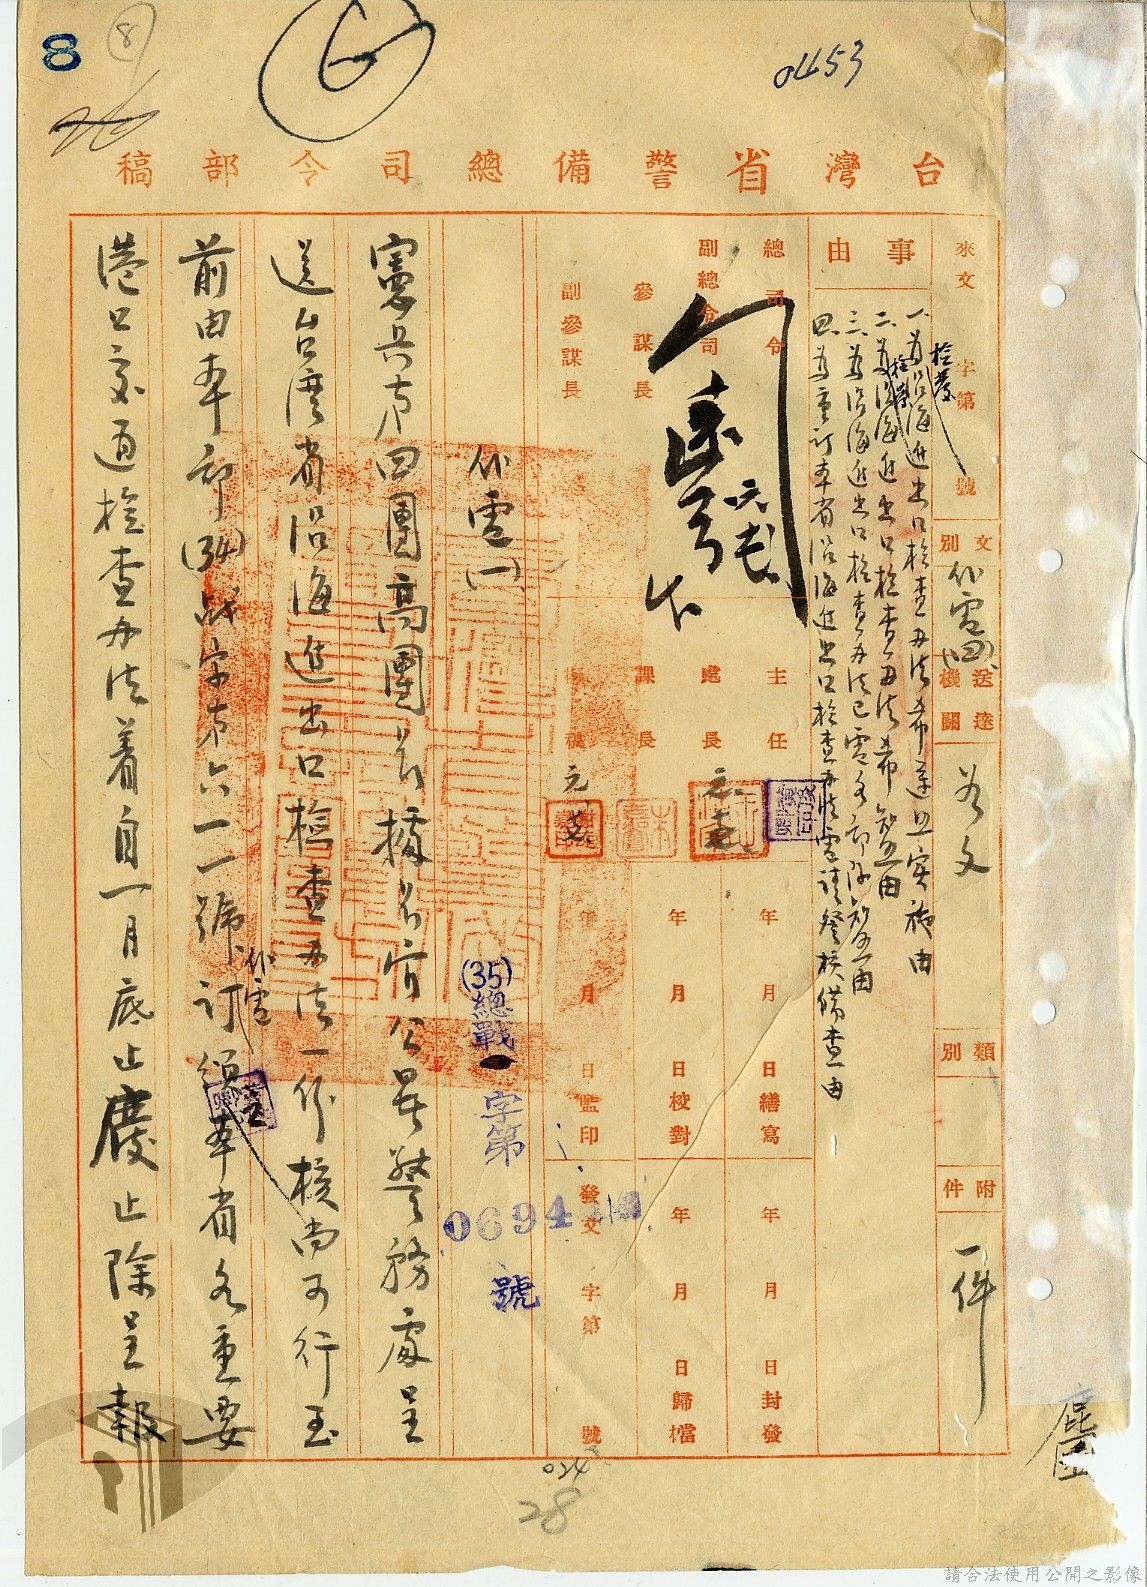 8
8
0453
台灣省警備總司令部稿
來文 字第 號
文別 代電(四)
送達機關 各文
類別
附件 一件
事由
一、為檢發沿海進出口檢查辦法希遵照實施由
二、為檢發沿海進出口檢查辦法希知照由
三、為沿海進出口檢查辦法已電各部隊知照由
四、為重訂本省沿海進出口檢查辦法電請登核備查由
總司令
副總司令
參謀長
副參謀長
主任
處長
課長
年 月 日繕寫
年 月 日校對
年 月 日監印
年 月 日封發
年 月 日歸檔
發文 字第 號
(35)總戰一字第 0694 號
代電(一)
憲兵第四團高團長據長官公署警務處呈
送台灣省沿海進出口檢查辦法一份核尚可行至
前由本部(34)戰字第六一一號代電訂頒本省各重要
港口交通檢查辦法着自一月底止廢止除呈報
024
28
請合法使用公開之影像